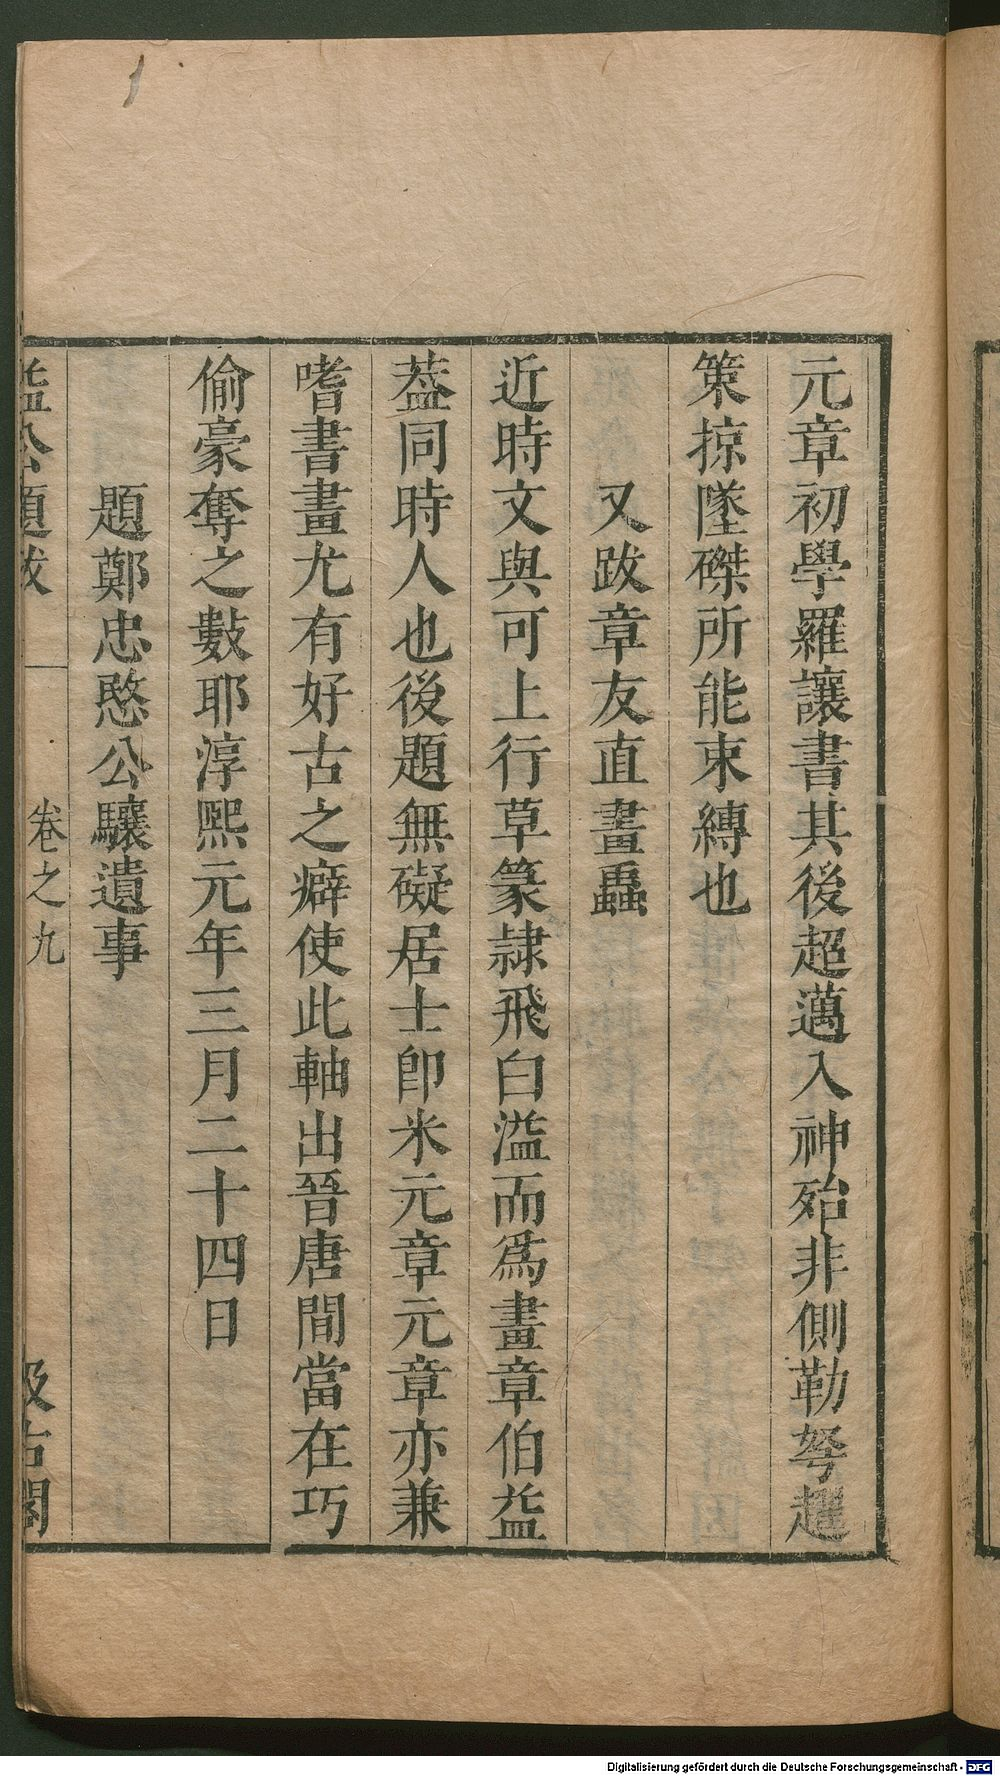 元章初學羅讓書其後超邁入神殆非側勒努趯
策掠墜磔所能束縛也
又跋章友直畫蟲
近時文與可上行草篆隷飛白溢而爲畫章伯益
葢同時人也後題無礙居士卽米元章元章亦兼
嗜書畫尤有好古之癖使此軸出晉唐間當在巧
偷豪奪之數耶淳熙元年三月二十四日
題鄭忠愍公驤遺事
益公題跋
卷之九
汲古閣
1
Digitalisierung gefördert durch die Deutsche Forschungsgemeinschaft - DFG